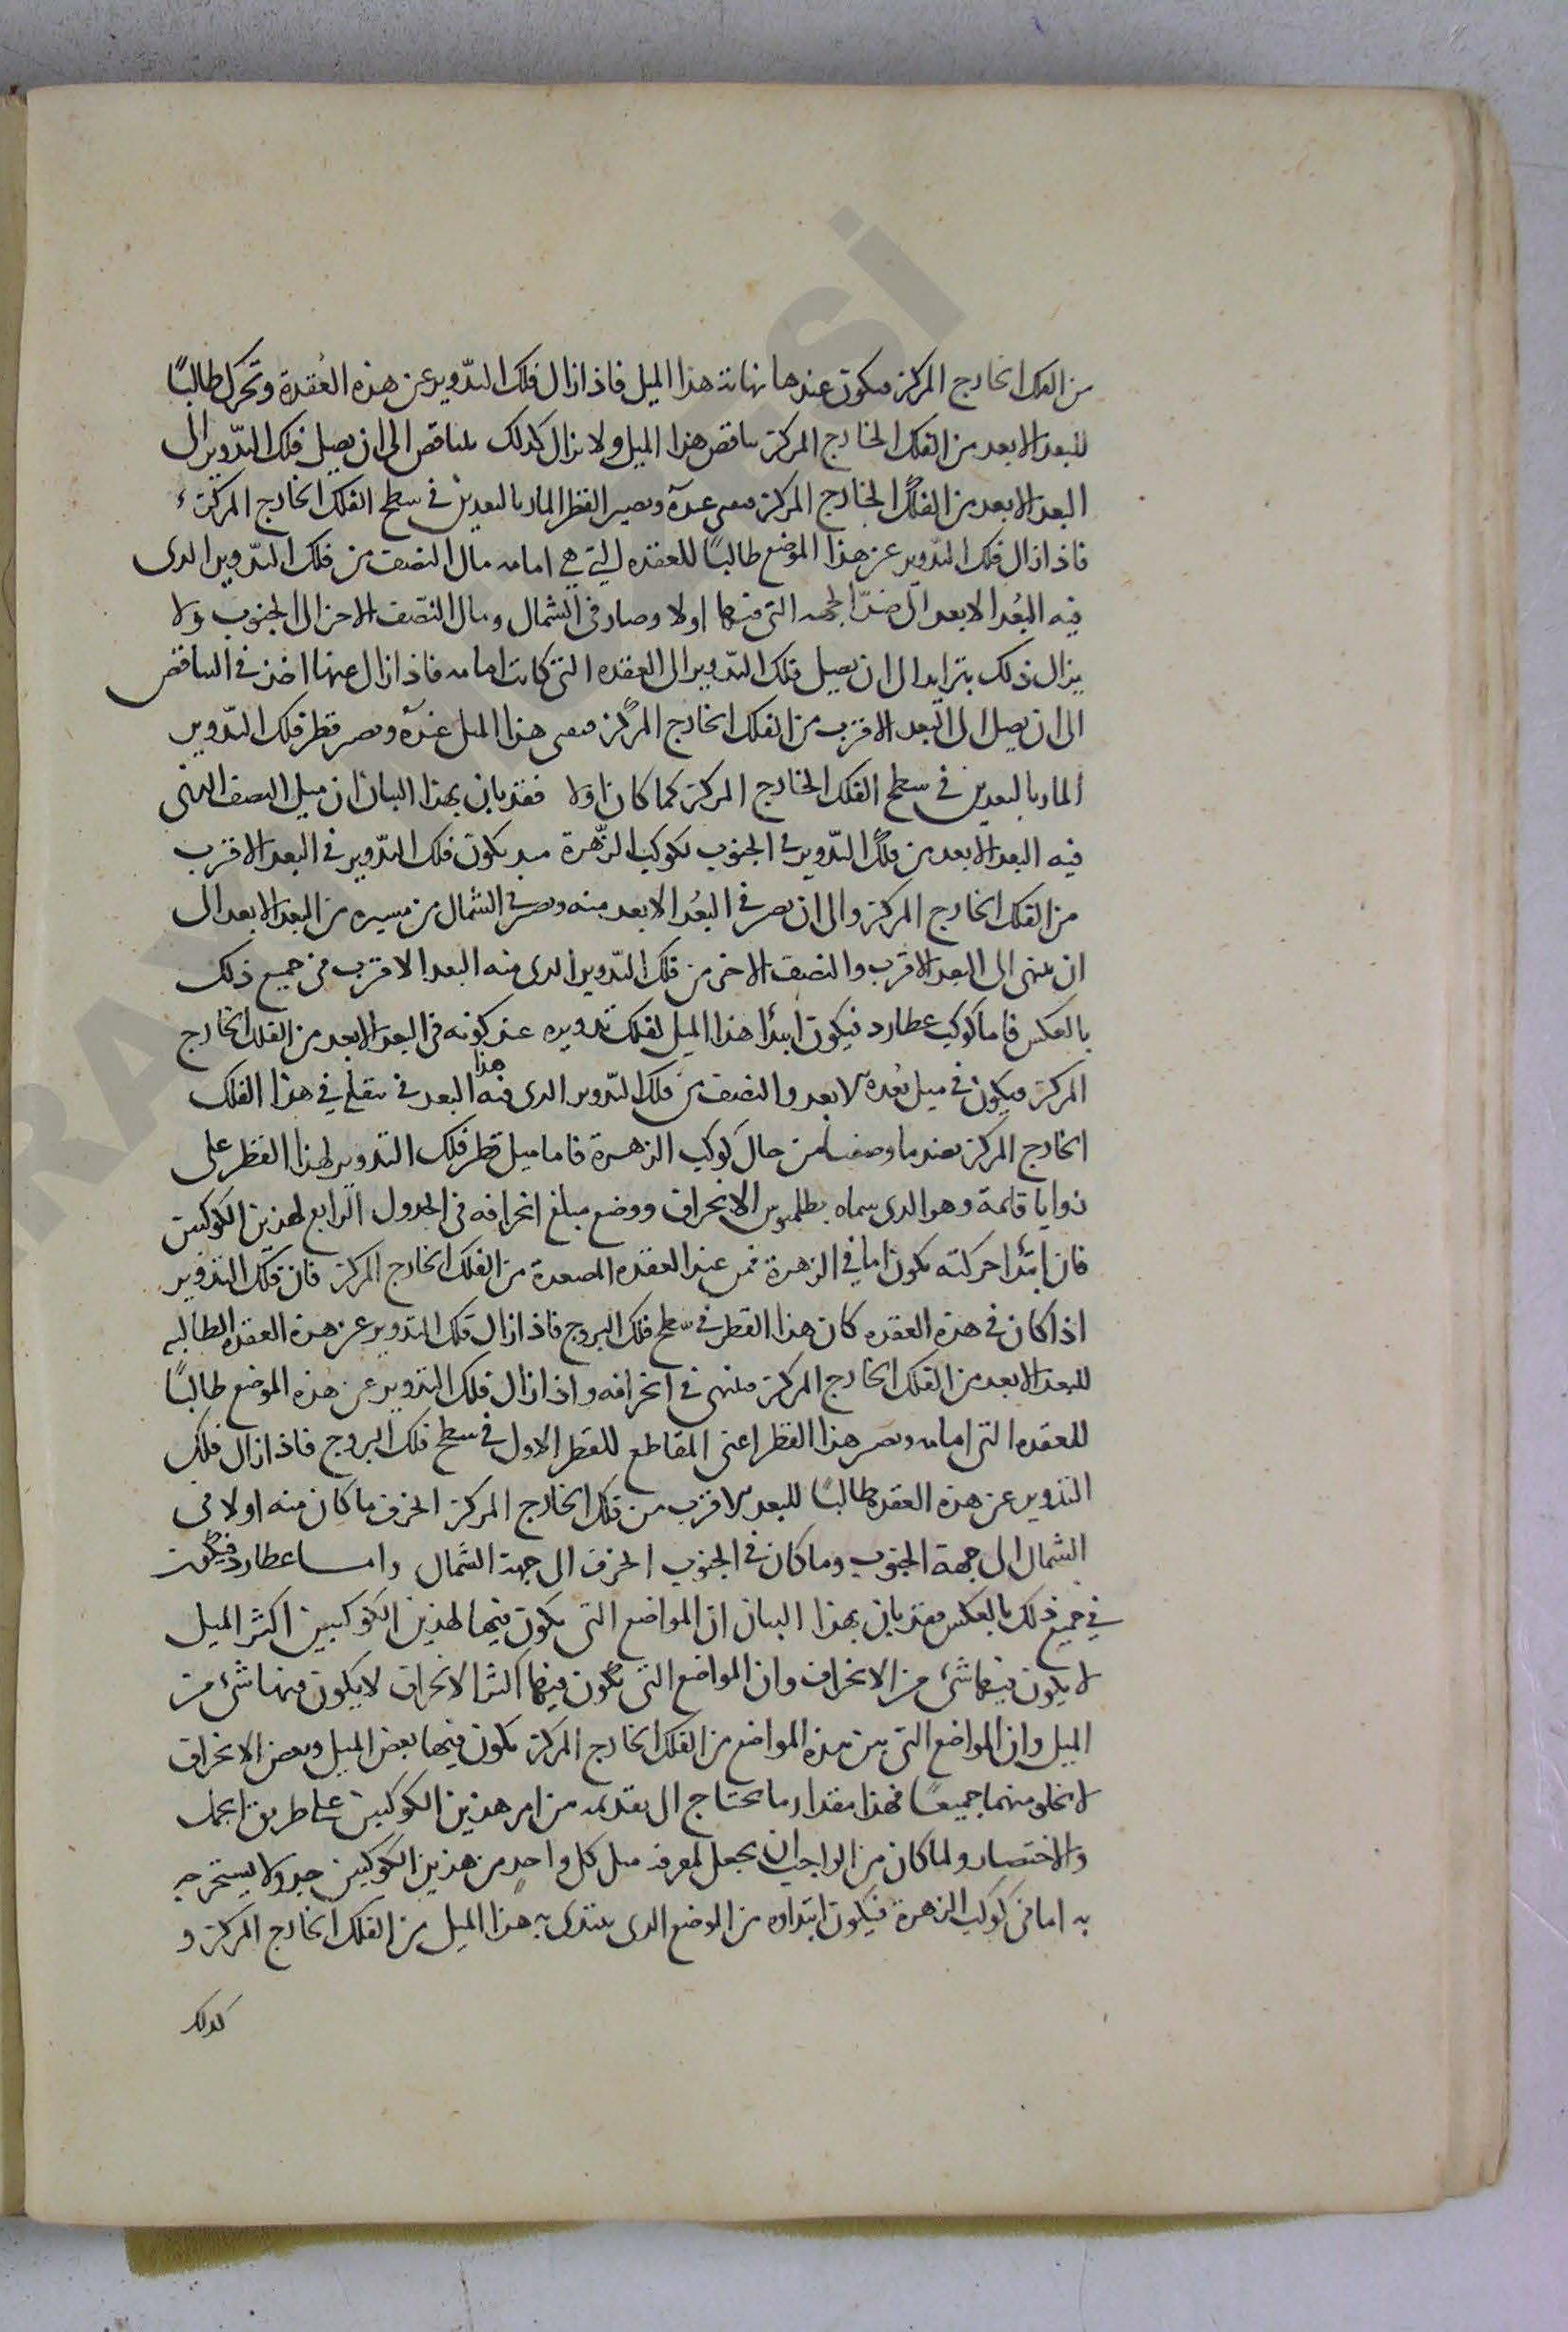 من الفلك الخارج المركز فيكون عندها نهاية هذا الميل فاذا زال فلك التدوير عن هذه العُقدة وتحرك طالبًا
للبعد الابعد من الفلك الخارج المركز تناقص هذا الميل ولا يزال كذلك يتناقص الى ان يصل فلك التدوير الى
البعد الابعد من الفلك الخارج المركز فيفنى عنده ويصير القطر المار بالبعدين في سطح الفلك الخارج المركز
فاذا زال فلك التدوير عن هذا الموضع طالبًا للعقده التي هي امامه مال النصف من فلك التدوير الدى
فيه البُعد الابعد الى ضدّ الجهه التى فيها اولا وصار في الشمال ومال النصف الاخر الى الجنوب ولا
يزال ذلك يتزايد الى ان يصل فلك التدوير الى العقده التى كانت امامه فاذا زال عنها اخذ في التناقص
الى ان يصل الى البعد الاقرب من الفلك الخارج المركز فيفنى هذا الميل عنده ويصير قطر فلك التدوير
المار بالبعدين في سطح الفلك الخارج المركز كما كان اولا فقد بان بهذا البيان ان ميل النصف الذى
فيه البعد الابعد من فلك التدوير في الجنوب لكوكب الزهرة منذ يكون فلك التدوير في البعد الاقرب
من الفلك الخارج المركز والى ان يصير في البُعد الابعد منه ويصير في الشمال من مسيره من البعد الابعد الى
ان ينتهى الى البعد الاقرب والنصف الاخر من فلك التدوير الدى فيه البعد الاقرب في جميع ذلك
بالعكس فاما كوكب عطارد فيكون ابتدا هذا الميل لفلك تدويره عند كونه في البعد الابعد من الفلك الخارج
المركز فيكون في ميل بُعده الابعد والنصف من فلك التدوير الدى فيه هذا البعد في تنقله في هذا الفلك
الخارج المركز بضد ما وصفنا من حال كوكب الزهرة فاما ميل قطر فلك التدوير لهذا القطر على
زوايا قائمة وهو الدى سماه بطلميوس الانحراف ووضع مبلغ انحرافه في الجدول الرابع لهذين الكوكبين
فان ابتدا حركته يكون اما في الزهرة فمن عند العقده المصعدة من الفلك الخارج المركز فان فلك التدوير
اذا كان في هذه العقده كان هذا القطر في سطح فلك البروج فاذا زال فلك التدوير عن هذه العقده الطالبه
للبعد الابعد من الفلك الخارج المركز فينتهى في انحرافه واذا زال فلك التدوير عن هذه الموضع طالبًا
للعقده التى امامه ويصير هذا القطر اعنى المقاطع للقطر الاول في سطح فلك البروج فاذا زال فلك
التدوير عن هذه العقده طالبًا للبعد الاقرب من فلك الخارج المركز انحرف ما كان منه اولا في
الشمال الى جهة الجنوب وما كان في الجنوب انحرف الى جهة الشمال واما عطارد فيكون
في جميع ذلك بالعكس فقد بان بهذا البيان ان المواضع التى يكون فيها لهذين الكوكبين اكثر الميل
لا يكون فيها شئ من الانحراف وان المواضع التى يكون فيها اكثر الانحراف لا يكون فيها شئ من
الميل وان المواضع التى بين هذه المواضع من الفلك الخارج المركز يكون فيها بعض الميل وبعض الانحراف
لا يخلو منهما جميعًا فهذا مقدار ما يحتاج الى تقديمه من امر هذين الكوكبين على طريق الجمل
والاختصار ولما كان من الواجب ان يجعل لمعرفة ميل كل واحد من هذين الكوكبين جدولا يستخرج
به اما في كوكب الزهرة فيكون ابتداوه من الموضع الدى يبتدى به هذا الميل من الفلك الخارج المركز و
كذلك